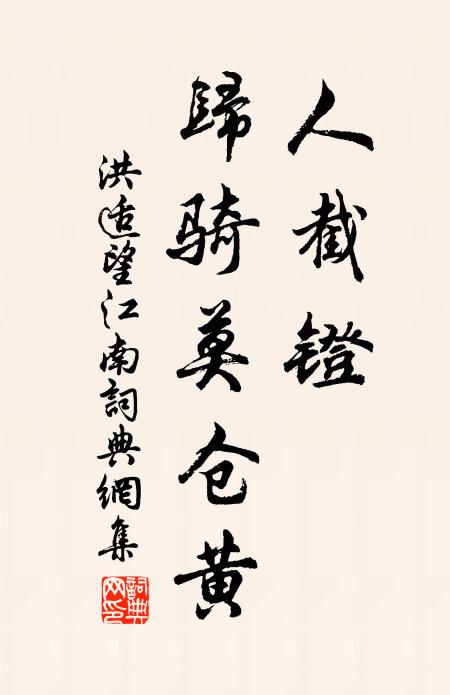 人截镫
歸骑莫仓黄
洪适望江南詞典網集
詞典网印